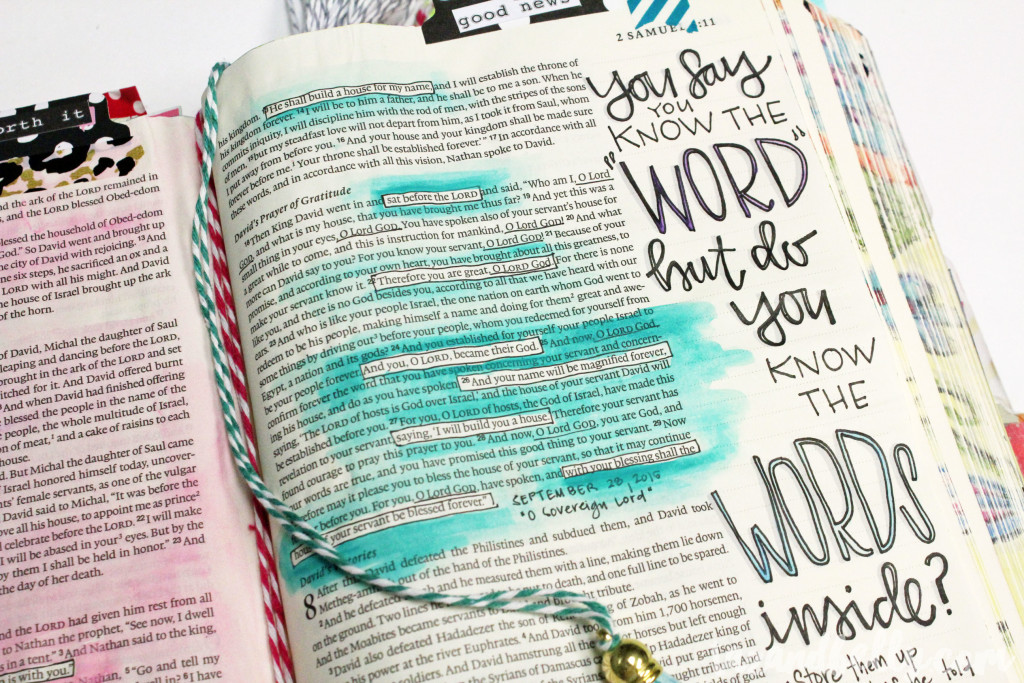 good news
2 SAMUEL :11
orth it
nd the ark of the LORD remained in
s, and the LORD blessed Obed-edom
lessed the household of Obed-edom
God." So David went and brought up
e city of David with rejoicing. 13 And
ne six steps, he sacrificed an ox and a
LORD with all his might. And David
he house of Israel brought up the ark
of the horn.
of David, Michal the daughter of Saul
eaping and dancing before the LORD,
brought in the ark of the LORD and set
itched for it. And David offered burnt
And when David had finished offering
blessed the people in the name of the
e people, the whole multitude of Israel,
on of meat, and a cake of raisins to each
house.
d. But Michal the daughter of Saul came
Israel honored himself today, uncover-
nts' female servants, as one of the vulgar
David said to Michal, "It was before the
ve all his house, to appoint me as prince
celebrate before the LORD. 22 I will make
will be abased in your eyes. But by the
em I shall be held in honor." 23 And
the day of her death.
nd the LORD had given him rest from all
o Nathan the prophet, "See now, I dwell
s in a tent." 3 And Nathan said to the king,
is with you."
5 "Go and tell my
He shall build a house for my name, and I will establish the throne of
his kingdom forever. 14 I will be to him a father, and he shall be to me a son. When he
commits iniquity, I will discipline him with the rod of men, with the stripes of the sons
of men, 15 but my steadfast love will not depart from him, as I took it from Saul, whom
I put away from before you. 16 And your house and your kingdom shall be made sure
forever before me. Your throne shall be established forever.'" 17 In accordance with all
these words, and in accordance with all this vision, Nathan spoke to David.
David's Prayer of Gratitude
18 Then King David went in and sat before the LORD and said, "Who am I, O Lord
GOD, and what is my house, that you have brought me thus far? 19 And yet this was a
small thing in your eyes, O Lord GOD. You have spoken also of your servant's house for
a great while to come, and this is instruction for mankind, O Lord GOD! 20 And what
more can David say to you? For you know your servant, O Lord GOD! 21 Because of your
promise, and according to your own heart, you have brought about all this greatness, to
make your servant know it. 22 Therefore you are great, O LORD God. For there is none
like you, and there is no God besides you, according to all that we have heard with our
ears. 23 And who is like your people Israel, the one nation on earth whom God went to
redeem to be his people, making himself a name and doing for them great and awe-
some things by driving out before your people, whom you redeemed for yourself from
Egypt, a nation and its gods? 24 And you established for yourself your people Israel to
be your people forever. And you, O LORD, became their God. 25 And now, O LORD God,
confirm forever the word that you have spoken concerning your servant and concern-
ing his house, and do as you have spoken. 26 And your name will be magnified forever,
saying, 'The LORD of hosts is God over Israel,' and the house of your servant David will
be established before you. 27 For you, O LORD of hosts, the God of Israel, have made this
revelation to your servant, saying, 'I will build you a house.' Therefore your servant has
found courage to pray this prayer to you. 28 And now, O Lord GOD, you are God, and
your words are true, and you have promised this good thing to your servant. 29 Now
therefore may it please you to bless the house of your servant, so that it may continue
forever before you. For you, O Lord GOD, have spoken, and with your blessing shall the
house of your servant be blessed forever."
SEPTEMBER 28 2015
"O Sovereign Lord"
David's Victories
8 After this David defeated the Philistines and subdued them, and David took
Metheg-ammah out of the hand of the Philistines.
2 And he defeated Moab and he measured them with a line, making them lie down
on the ground. Two lines he measured to be put to death, and one full line to be spared.
And the Moabites became servants to David and brought tribute.
3 David also defeated Hadadezer the son of Rehob, king of Zobah, as he went to
his power at the river Euphrates. 4 And David took from him 1,700 horsemen,
soldiers. And David hamstrung all the horses but left enough
the Syrians of Damascus Hadadezer king of
put garrisons in
ought tribute. And
You Say
YOU
KNOW THE
"WORD"
but do
you
KNOW
THE
WORDS
inside?
store them up
told